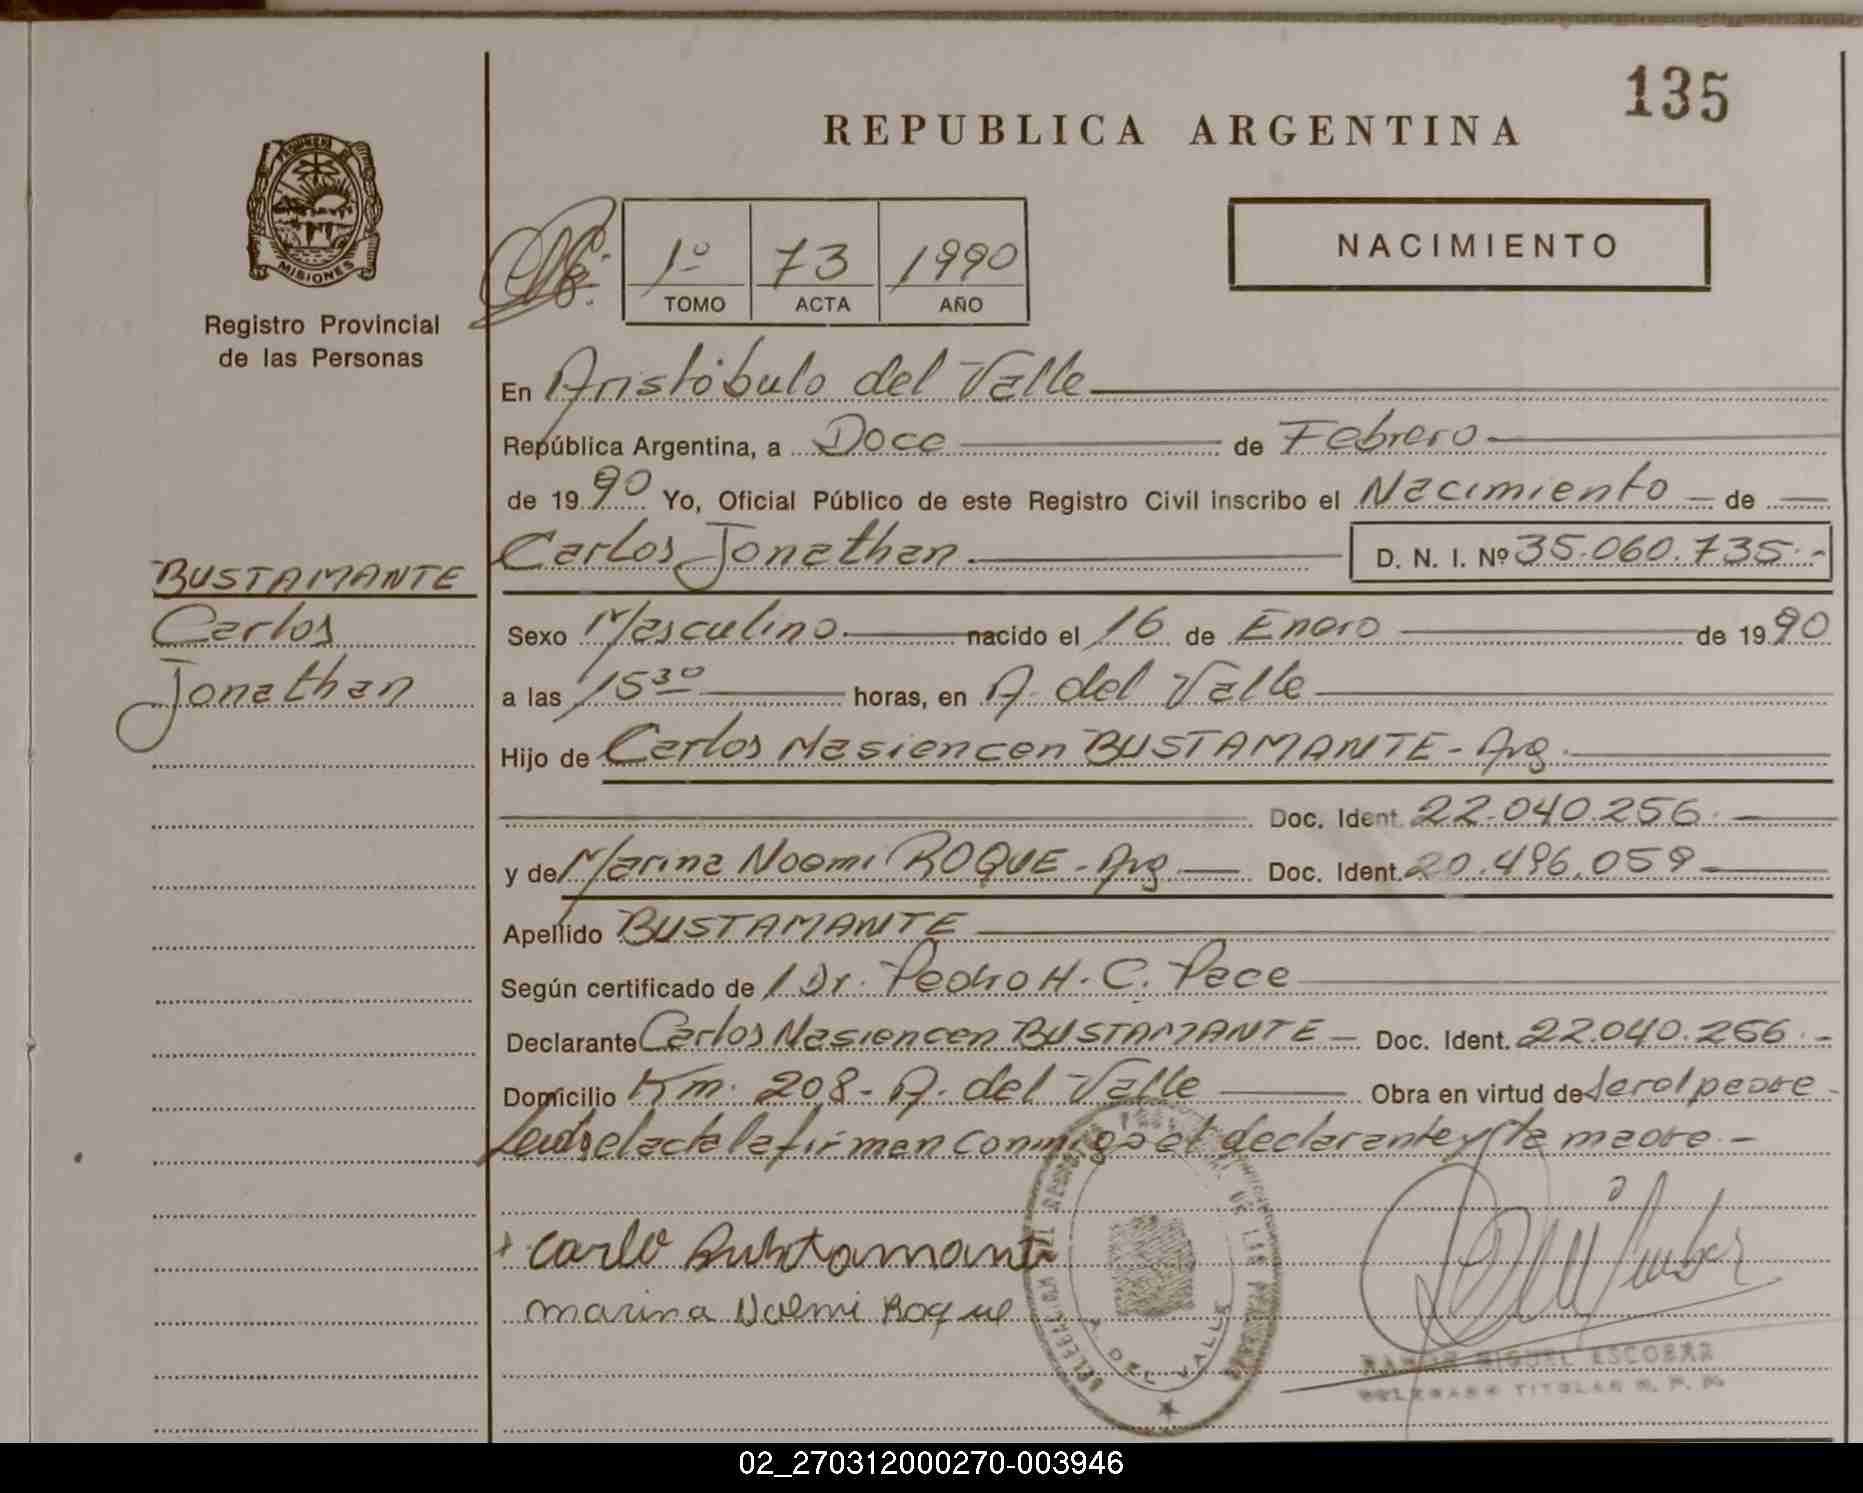 135
REPUBLICA ARGENTINA
PROVINCIA DE
MISIONES
Registro Provincial
de las Personas
1º 73 1990
TOMO ACTA AÑO
NACIMIENTO
En Aristóbulo del Valle
República Argentina, a Doce de Febrero
de 1990 Yo, Oficial Público de este Registro Civil inscribo el Nacimiento de
Carlos Jonathan. D. N. I. Nº 35.060.735.-
BUSTAMANTE
Carlos
Jonathan
Sexo Masculino. nacido el 16 de Enero de 1990
a las 15 30 horas, en A. del Valle
Hijo de Carlos Masiencen BUSTAMANTE - Arg.
Doc. Ident. 22.040.256.
y de Marina Noemi ROQUE - Arg Doc. Ident. 20.496.059
Apellido BUSTAMANTE
Según certificado de l Dr. Pedro H. C. Pace
Declarante Carlos Masiencen BUSTAMANTE - Doc. Ident. 22.040.256.-
Domicilio Km. 208 - A. del Valle Obra en virtud de ser el padre -
el acta la firman conmigo el declarante y la madre. -
Carlo Bustamante
marina Noemi Roque
A. DEL VALLE
RAMON MIGUEL ESCOBAR
DELEGADO TITULAR
02_270312000270-003946